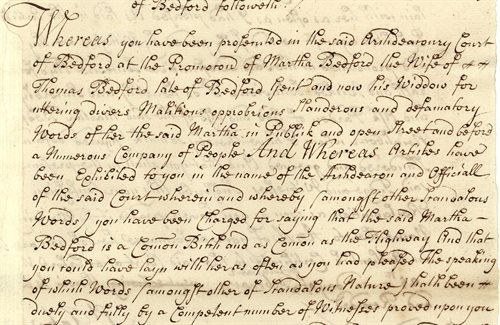 of Bedford followeth.
Whereas you have been presented in the said Archdeaconry Court
of Bedford at the Promocon of Martha Bedford the Wife of & &
Thomas Bedford late of Bedford Gent and now his Widdow for
uttering divers Malitious opprobrious slanderous and defamatory
Words of her the said Martha in Publick and open Street and before
a Numerous Company of People And Whereas Articles have
been Exhibited to you in the name of the Archdeacon and Officiall
of the said Court wherein and whereby (amongst other Scandalous
Words) you have been Charged for saying that the said Martha
Bedford is a Comon Bitch and as Comon as the Highway And that
you could have layn with her as often as you had pleased the speaking
of which Words (amongst other of Scandalous Nature) hath been &
duely and fully by a Competent number of Witnesses proved upon you